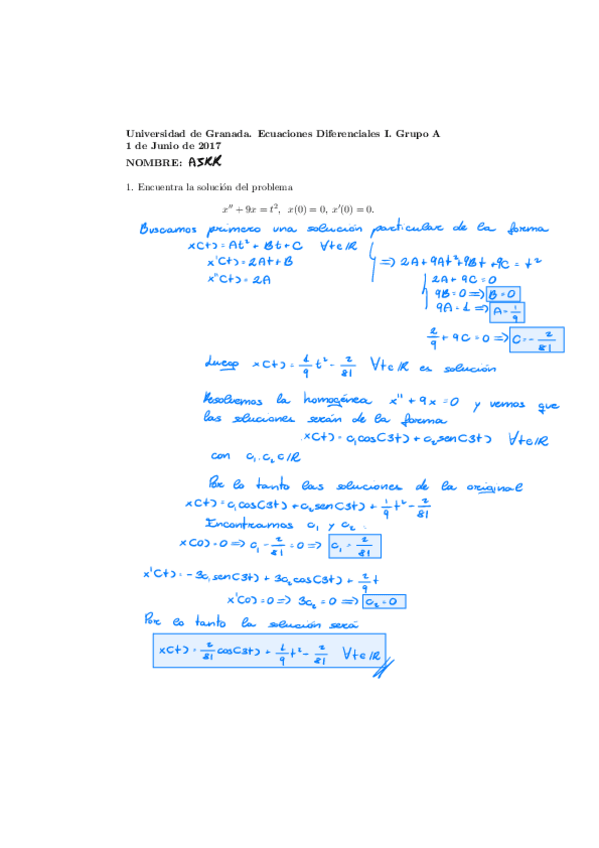 Universidad de Granada. Ecuaciones Diferenciales I. Grupo A
1 de Junio de 2017
NOMBRE: ASRR
1. Encuentra la solución del problema
x'' + 9x = t², x(0) = 0, x'(0) = 0.
Buscamos primero una solución particular de la forma
x(t) = At² + Bt + C ∀t∈ℝ
x'(t) = 2At + B
x''(t) = 2A
⇒ 2A + 9At² + 9Bt + 9C = t²
2A + 9C = 0
9B = 0 ⇒ B = 0
9A = 1 ⇒ A = 1/9
2/9 + 9C = 0 ⇒ C = - 2/81
Luego x(t) = 1/9 t² - 2/81 ∀t∈ℝ es solución
Resolvemos la homogénea x'' + 9x = 0 y vemos que
las soluciones serán de la forma
x(t) = c₁cos(3t) + c₂sen(3t) ∀t∈ℝ
con c₁, c₂ ∈ ℝ
Por lo tanto las soluciones de la original
x(t) = c₁cos(3t) + c₂sen(3t) + 1/9 t² - 2/81
Encontramos c₁ y c₂.
x(0) = 0 ⇒ c₁ - 2/81 = 0 ⇒ c₁ = 2/81
x'(t) = -3c₁sen(3t) + 3c₂cos(3t) + 2/9 t
x'(0) = 0 ⇒ 3c₂ = 0 ⇒ c₂ = 0
Por lo tanto la solución será
x(t) = 2/81 cos(3t) + 1/9 t² - 2/81 ∀t∈ℝ